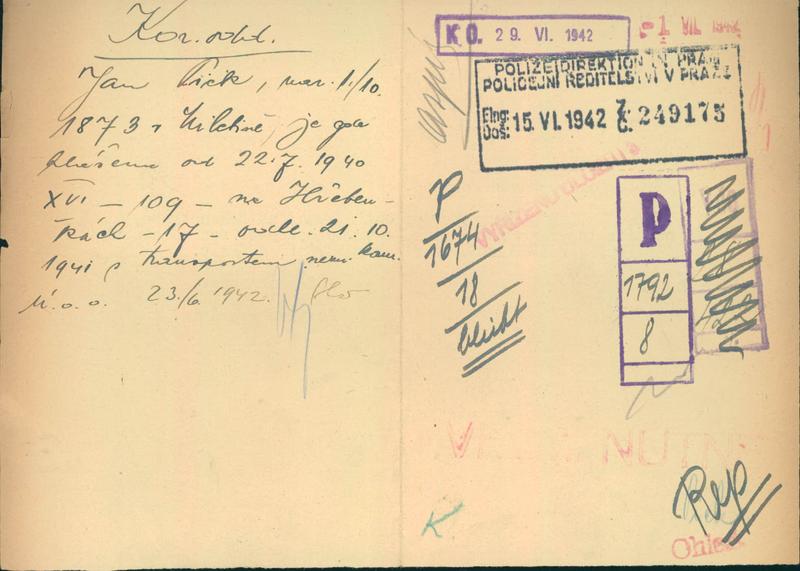 Kor. odd.
Jan Pick, nar. 1./10.
1873 v Miletíně, je po-
hlášena od 22.7. 1940
XVI – 109 – na Hřeben-
kách – 17 – odhl. 21. 10.
1941 s transportem nezn. kam.
M.o.o. 23./6. 1942.
K O. 29. VI. 1942
-1 VII. 1942
POLIZEIDIREKTION IN PRAG
POLICEJNÍ ŘEDITELSTVÍ V PRAZE
Eing:
Doš: 15. VI. 1942 Z. Č. 249175
VYŘÍZENO ÚLOŽIT
P
1674
18
bleibt
P
1792
8
NUTN
Rep
K